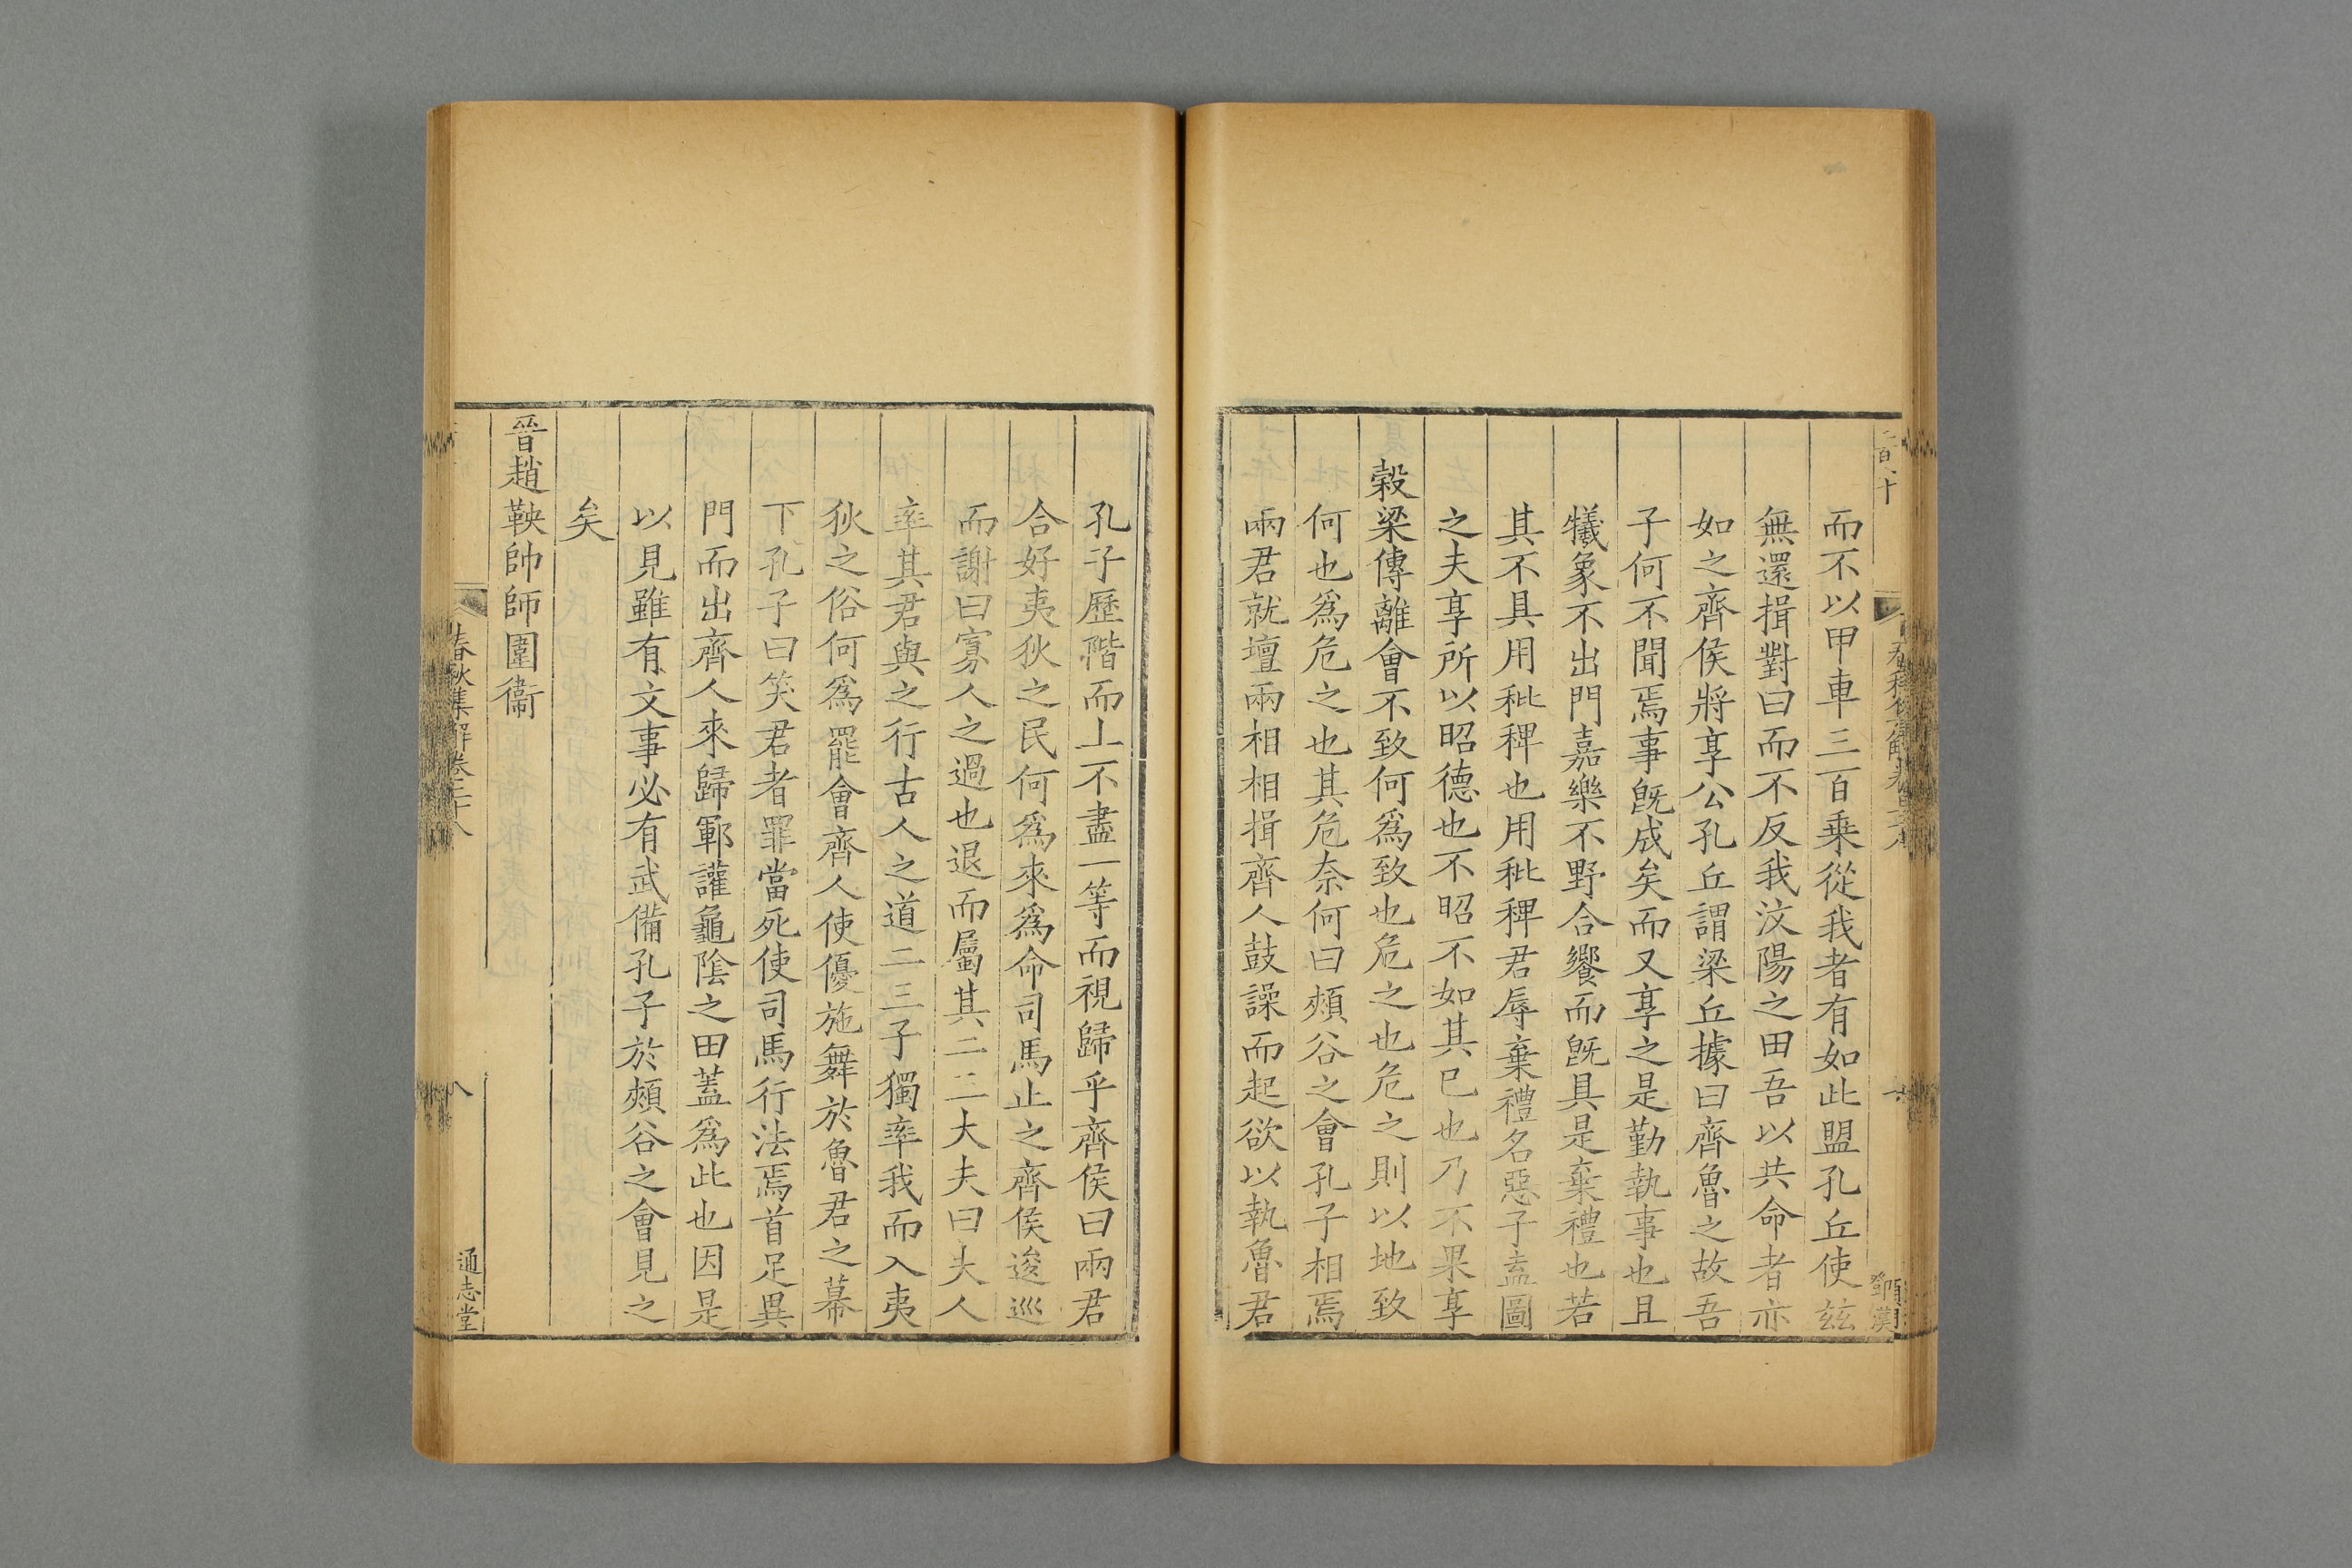 而不以甲車三百乘從我者有如此盟孔丘使兹
無還揖對曰而不反我汶陽之田吾以共命者亦
如之齊侯將享公孔丘謂梁丘據曰齊魯之故吾
子何不聞焉事旣成矣而又享之是勤執事也且
犧象不出門嘉樂不野合饗而旣具是棄禮也若
其不具用秕稗也用秕稗君辱棄禮名惡子盍圖
之夫享所以昭德也不昭不如其已也乃不果享
穀梁傳離會不致何爲致也危之也危之則以地致
何也爲危之也其危奈何曰頰谷之會孔子相焉
兩君就壇兩相相揖齊人鼓譟而起欲以執魯君
孔子歷階而上不盡一等而視歸乎齊侯曰兩君
合好夷狄之民何爲來爲命司馬止之齊侯逡巡
而謝曰寡人之過也退而屬其二三大夫曰夫人
率其君與之行古人之道二三子獨率我而入夷
狄之俗何爲罷會齊人使優施舞於魯君之幕
下孔子曰笑君者罪當死使司馬行法焉首足異
門而出齊人來歸鄆讙龜陰之田蓋爲此也因是
以見雖有文事必有武備孔子於頰谷之會見之
矣
晉趙鞅帥師圍衞
春秋集解卷二十八
八
通志堂